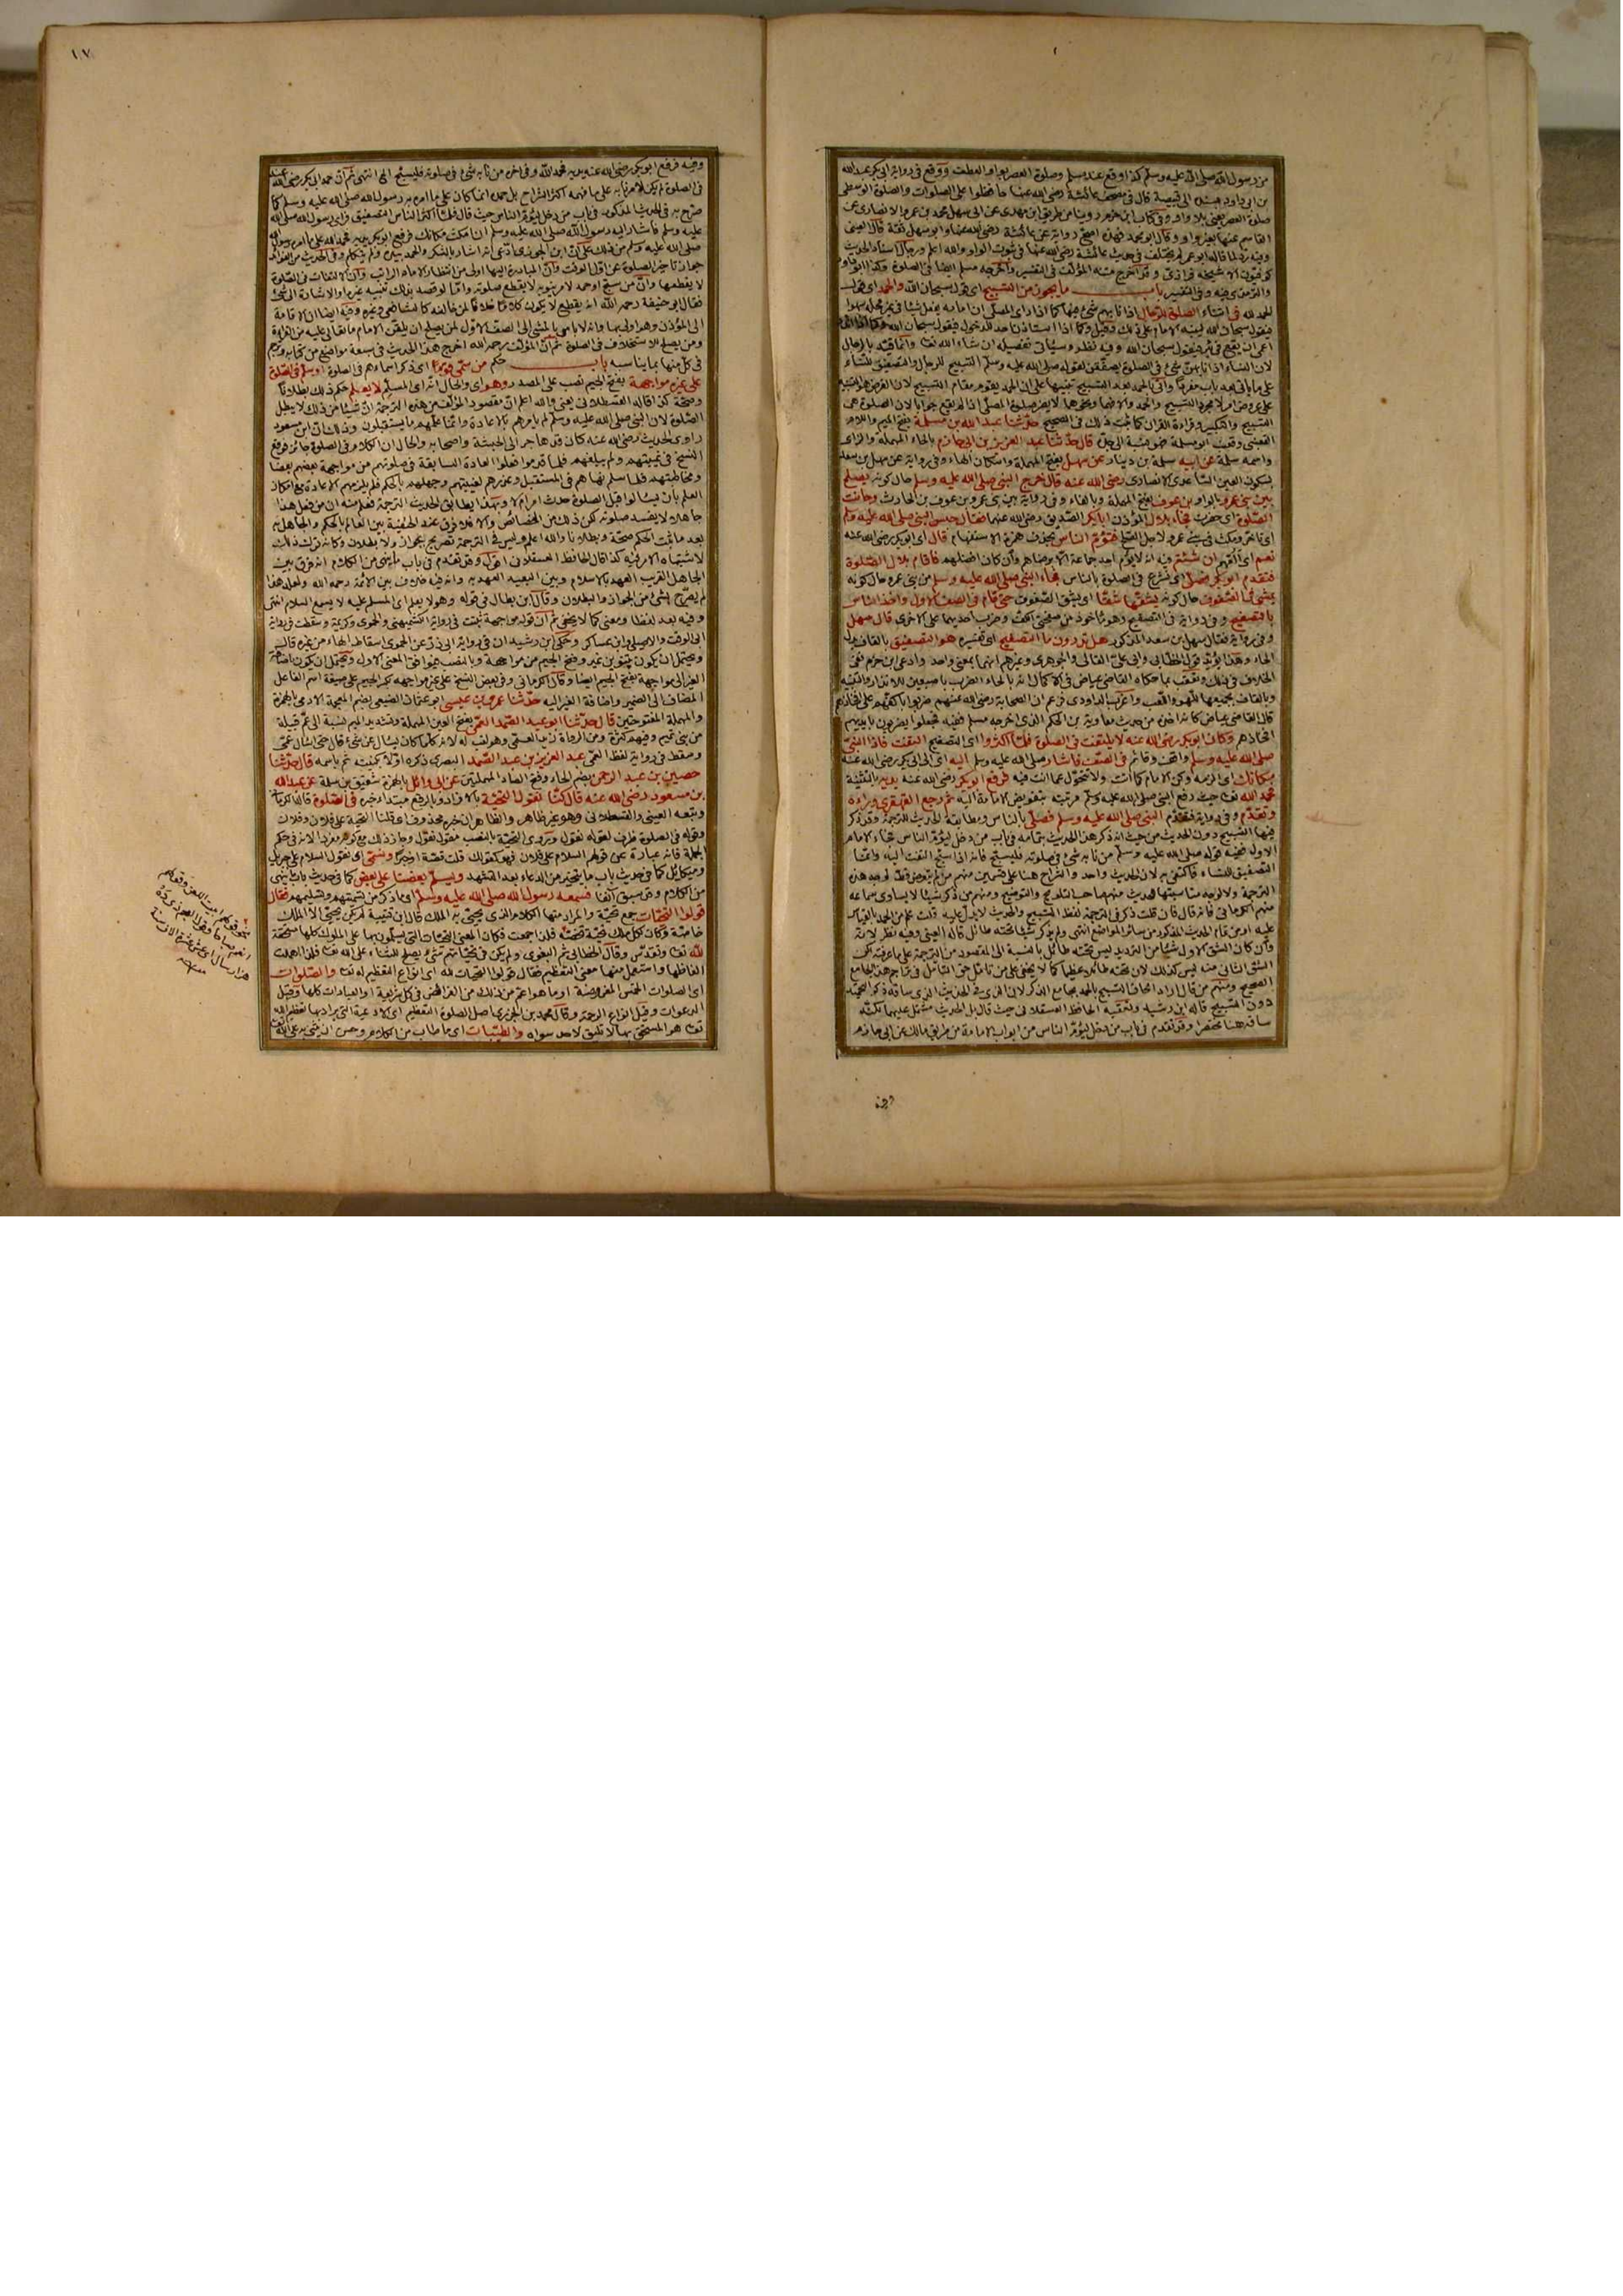 من رسول الله صلى الله عليه وسلم كذا وقع عند مسلم وصلوة العصر بواو العطف ووقع في رواية ابي بكر عبد الله
بن ابي داود قبيصة قال في مصحف عائشة رضي الله عنها حافظوا على الصلوات والصلوة الوسطى
صلوة العصر يعني بلا واو وفي كتاب ابن حزم روينا من طريق ابن مهدي عن ابي سهل محمد بن عمرو الانصاري عن
القاسم عنها بغير واو وقال ابو محمد فهذه اصح رواية عن عائشة رضي الله عنها وابو سهل ثقة قال العيني
وفيه رد لما قاله ابو عمر لم يختلف في حديث عائشة رضي الله عنها في ثبوت الواو والله اعلم ورجال اسناد الحديث
كوفيون الا شيخه فرازي وقد اخرج متنه المؤلف في التفسير واخرجه مسلم ايضا في الصلوة وكذا ابو داود
والترمذي فيه وفي التفسير باب ما يجوز من التسبيح اي قول سبحان الله والحمد اي قول
الحمد لله في اثناء الصلوة للرجال اذا نابهم شئ فيها كما اذا راى المصلى ان امامه يفعل شيئا في غير محله سهوا
فيقول سبحان الله لينبه الامام على ذلك وقيل وكما اذا استاذن احد للدخول فيقول سبحان الله
اعمى ان يقع في بئر فيقول سبحان الله وفيه نظر وسيأتي تفصيله ان شاء الله تعا وانما قيد بالرجال
لان النساء اذا نابهن شئ في الصلوة يصفقن لقوله صلى الله عليه وسلم التسبيح للرجال والتصفيق للنساء
على ما ياتي بعد باب مفردا واتى بالحمد بعد التسبيح تنبيها على ان الحمد يقوم مقام التسبيح لان الغرض هو التنبيه
التسبيح والتكبير وقراءة القران كما ثبت ذلك في الصحيح حدثنا عبد الله بن مسلمة بفتح الميم واللام
القعنبي وقعنب قال حدثنا عبد العزيز بن ابي حازم بالحاء المهملة والزاى
واسمه سلمة عن ابيه سلمة بن دينار عن سهل بفتح المهملة واسكان الهاء وفي رواية عن سهل بن سعد
بسكون العين الساعدي الانصاري رضي الله عنه قال خرج النبي صلى الله عليه وسلم حال كونه يصلح
بين بني عمرو بالواو بن عوف بفتح المهملة وبالفاء وفي رواية بين بني عمرو بن عوف بن الحارث وحانت
الصلوة اي حضرت فجاء بلال المؤذن ابا بكر الصديق رضي الله عنهما فقال حبس النبي صلى الله عليه وسلم
اي تاخر ومكث في بني عمرو لاجل الصلح فتؤم الناس بحذف همزة الاستفهام قال اي ابو بكر رضي الله عنه
نعم اي اؤمهم ان شئتم فيه انه لا يؤم احد جماعة الا برضاهم وان كان افضلهم فاقام بلال الصلوة
فتقدم ابو بكر فصلى اي شرع في الصلوة بالناس فجاء النبي صلى الله عليه وسلم من بني عمرو حال كونه
يمشي في الصفوف حال كونه يشقها شقا اي يشق الصفوف حتى قام في الصف الاول واخذ الناس
بالتصفيح وفي رواية في التصفيح وهو مأخوذ من صفحتي الكف وضرب احديهما على الاخرى قال سهل
وفي رواية فقال سهل بن سعد المذكور هل تدرون ما التصفيح اي تفسيره هو التصفيق بالقاف بدل
الحاء وهذا يؤيد قول الخطابي وابي علي القالي والجوهري وغيرهم انهما بمعنى واحد وادعى ابن حزم نفي
الخلاف في ذلك وتعقب بما حكاه القاضي عياض في الاكمال انه بالحاء الضرب باصبعين للانذار والتنبيه
وبالقاف بجميعها للهو واللعب واغرب الداودي فزعم ان الصحابة رضي الله عنهم ضربوا باكفهم على افخاذهم
قال القاضي عياض كانه اخذه من حديث معاوية بن الحكم الذي اخرجه مسلم ففيه فجعلوا يضربون بايديهم
افخاذهم وكان ابو بكر رضي الله عنه لا يلتفت في الصلوة فلما اكثروا اي التصفيح التفت فاذا النبي
صلى الله عليه وسلم واقف وقائم في الصف فاشار صلى الله عليه وسلم اليه اي الى ابي بكر رضي الله عنه
مكانك اي الزمه وكن الامام كما انت ولا تتحول عما انت فيه فرفع ابو بكر رضي الله عنه يديه بالتثنية
فحمد الله تعا حيث رفع النبي صلى الله عليه وسلم مرتبته بتفويض الامامة اليه ثم رجع القهقرى وراءه
وتقدم وفي رواية فتقدم النبي صلى الله عليه وسلم فصلى بالناس ومطابقة الحديث للترجمة وقد ذكر
فيها التسبيح دون الحديث من حيث انه ذكر هذا الحديث بتمامه في باب من دخل ليؤم الناس فجاء الامام
الاول ففيه قوله صلى الله عليه وسلم من نابه شئ في صلوته فليسبح فانه اذا سبح التفت اليه وانما
التصفيق للنساء فاكتفى به لان الحديث واحد والشراح هنا على قسمين منهم من لم يتعرض قط لوجه هذه
الترجمة ولا لوجه مناسبتها للحديث منهم صاحب التلويح والتوضيح ومنهم من ذكر شيئا لا يساوى سماعه
منهم الكرماني فانه قال فان قلت ذكر في الترجمة لفظ التسبيح والحديث لا يدل عليه قلت علم من الحمد بالقياس
عليه او من تمام الحديث المذكور من سائر المواضع انتهى ولم يذكر شيئا تحته طائل قاله العيني وفيه نظر لانه
وان كان الشق الاول شيئا من الترديد ليس تحته طائل بالنسبة الى المقصود من الترجمة على ما عرفته لكن
الشق الثاني منه ليس كذلك لان تحته طائلا عظيما كما لا يخفى على من تأمل حق التأمل في تراجم هذا الجامع
الصحيح ومنهم من قال اراد الحاق التسبيح بالحمد بجامع الذكر لان الذي في الحديث الذي ساقه ذكر التحميد
دون التسبيح قاله ابن رشيد وتعقبه الحافظ العسقلاني حيث قال بل الحديث مشتمل عليهما لكنه
ساقه هنا مختصرا وقد تقدم في باب من دخل ليؤم الناس من ابواب الامامة من طريق مالك عن ابي حازم
وفيه
١٠٧
وفيه فرفع ابو بكر رضي الله عنه يديه فحمد الله وفي اخره من نابه شئ في صلوته فليسبح الى انتهى ثم ان حمد ابي بكر رضي الله عنه
في الصلوة لم يكن لامر نابه على ما فهمه اكثر الشراح بل حمده انما كان على ما امره به رسول الله صلى الله عليه وسلم كما
صرح به في الحديث المذكور في باب من دخل ليؤم الناس حيث قال فلما اكثر الناس التصفيق فراى رسول الله صلى الله
عليه وسلم فاشار اليه رسول الله صلى الله عليه وسلم ان امكث مكانك فرفع ابو بكر يديه فحمد الله على ما امره رسول الله
صلى الله عليه وسلم من ذلك على ان ابن الجوزي ادعى انه اشار بالشكر والحمد بيده ولم يتكلم وفي الحديث من الفوائد
جواز تاخير الصلوة عن اول الوقت وان المبادرة اليها اولى من انتظار الامام الراتب وان الالتفات في الصلوة
لا يقطعها وان من سبح او حمد لامر ينوبه لا يقطع صلوته واما لو قصد بذلك تنبيه غيره او الاشارة الى شئ
فقال ابو حنيفة رحمه الله انه يقطع لا يكون كلاما خلافا لمن خالفه كالشافعي وغيره وفيه ايضا ان الاقامة
الى المؤذن وهو اولى بها وانه لا باس بالمشي الى الصف الاول لمن يصلح ان يلقن الامام ما تعايا عليه من القراءة
ومن يصلح للاستخلاف في الصلوة ثم ان المؤلف رحمه الله اخرج هذا الحديث في سبعة مواضع من كتابه وترجم
في كل منها بما يناسبه باب حكم من سمى قوما اي ذكر اسماءهم في الصلوة او سلم في الصلوة
على غيره مواجهة بفتح الجيم نصب على المصدر وهو اي والحال انه اي المسلم لا يعلم حكم ذلك بطلانا
وصحة كذا قاله القسطلاني يعني والله اعلم ان مقصود المؤلف من هذه الترجمة ان شيئا من ذلك لا يبطل
الصلوة لان النبي صلى الله عليه وسلم لم يامرهم بالاعادة وانما علمهم ما يستقبلون وذلك ان ابن مسعود
راوى الحديث رضي الله عنه كان قد هاجر الى الحبشة واصحابه والحال ان الكلام في الصلوة جائز فوقع
النسخ في غيبتهم ولم يبلغهم فلما قدموا فعلوا العادة السابقة في صلوتهم من مواجهة بعضهم بعضا
ومخاطبتهم فلما سلم نهاهم في المستقبل وعذرهم لغيبتهم وجهلهم بالحكم فلم يلزمهم الاعادة مع امكان
العلم بان يسألوا قبل الصلوة حدث امر ام لا وبهذا يطابق الحديث الترجمة فعلم منه ان من فعل هذا
جاهلا لا يفسد صلوته لكن ذلك من الخصائص والا فلا فرق عند الحنفية بين العالم بالحكم والجاهل به
بعد ما ثبت الحكم صحة وبطلانا والله اعلم وليس في الترجمة تصريح بجواز ولا بطلان وكانه ترك ذلك
لاشتباه الامر فيه كذا قال الحافظ العسقلاني اقول وقد تقدم في باب ما ينهى من الكلام انه فرق بين
الجاهل القريب العهد بالاسلام وبين البعيد العهد به وانه فيه خلاف بين الائمة رحمه الله ولعله لهذا
لم يصرح بشئ من الجواز والبطلان وقال ابن بطال في قوله وهو لا يعلم اي المسلم عليه لا يسمع السلام انتهى
وفيه بعد لفظا ومعنى كما لا يخفى ثم ان قوله مواجهة ثبت في رواية الكشميهني والحموي وكريمة وسقطت في رواية
ابي الوقت والاصيلي وابن عساكر وحكى ابن رشيد ان في رواية ابي ذر عن الحموي اسقاط الهاء من غيره قال
ويحتمل ان يكون بتنوين غير وفتح الجيم من مواجهة وبالنصب فيوافق المعنى الاول ويحتمل ان يكون باضافة
الغير الى مواجهة بفتح الجيم ايضا وقال الكرماني وفي بعض النسخ على غير مواجهه بكسر الجيم على صيغة اسم الفاعل
المضاف الى الضمير واضافة الغير اليه حدثنا عمرو بن عيسى ابو عثمان الضبعي بضم المعجمة الادمي بالهمزة
والمهملة المفتوحتين قال حدثنا ابو عبد الصمد العمي بفتح العين المهملة وتشديد الميم نسبة الى عم قبيلة
من بني تميم وفيهم كثرة ومن الرواة زيد العمي وهو لقب له لانه كلما كان يسأل عن شئ قال حتى اسال عمي
وسقط في رواية لفظ العمي عبد العزيز بن عبد الصمد البصري ذكره اولا بكنيته ثم باسمه قال حدثنا
حصين بن عبد الرحمن بضم الحاء وفتح الصاد المهملتين عن ابي وائل بالهمزة شقيق بن سلمة عن عبد الله
بن مسعود رضي الله عنه قال كنا نقول التحية بالافراد وبالرفع مبتدا خبره في الصلوة قاله الكرماني
وتبعه العيني والقسطلاني وهو غير ظاهر والظاهر ان خبره محذوف اي قلنا التحية على فلان وفلان
وقوله في الصلوة ظرف لقوله نقول ويروى التحية بالنصب مفعول نقول وجاز ذلك مع كونه مفردا لانه في حكم
الجملة فانه عبارة عن قولهم السلام على فلان فهو كقولك قلت قصة اخبرتك ونسمي اي نقول السلام على جبريل
وميكائيل كما في حديث باب ما يتخير من الدعاء بعد التشهد ويسلم بعضنا على بعض كما في حديث باب ما ينهى
من الكلام وقد سبق آنفا فسمعه رسول الله صلى الله عليه وسلم اي ما ذكر من تسميتهم وتسليمهم فقال
قولوا التحيات جمع تحية والمراد منها الكلام الذي يحيى به الملك قال ابن قتيبة لم يكن يحيى الا الملك
خاصة وكان لكل ملك تحية تخصه فلذا جمعت فكان المعنى التحيات التي يسلمون بها على الملوك كلها مستحقة
لله تعا وتقدس وقال الخطابي ثم البغوي ولم يكن في تحياتهم شئ يصلح للثناء على الله تعا فلذا ابهمت
الفاظها واستعمل منها معنى التعظيم فقال قولوا التحيات لله اي انواع التعظيم له تعا والصلوات
اي الصلوات الخمس المفروضة او ما هو اعم من ذلك من الفرائض في كل شريعة او العبادات كلها وقيل
الدعوات وقيل انواع الرحمة وقال محمد بن الجزري اصل الصلوة التعظيم اي الادعية التي يراد بها تعظيم الله
تعا هو المستحق بها لا تليق لاحد سواه والطيبات اي ما طاب من الكلام وحسن ان يثنى به على الله تعا